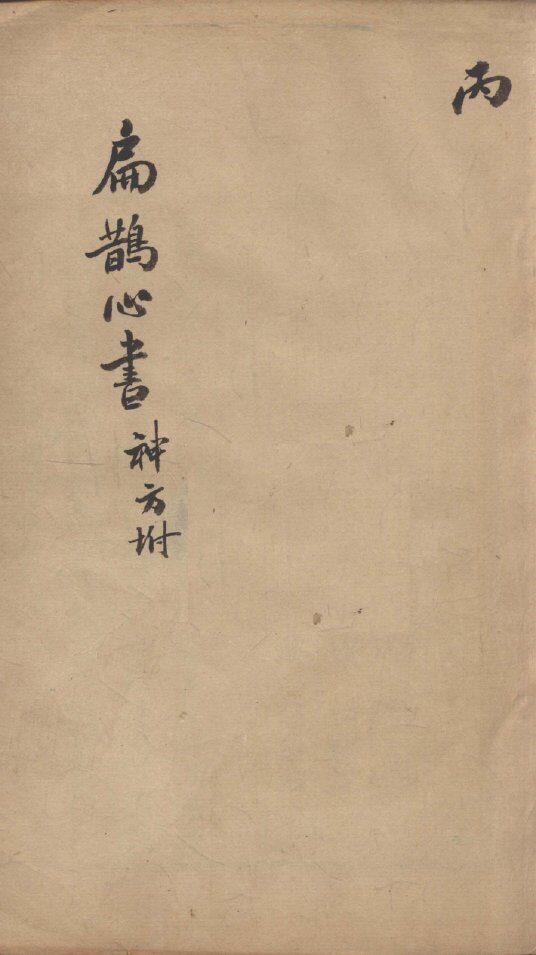 丙
扁鵲心書
神方坿